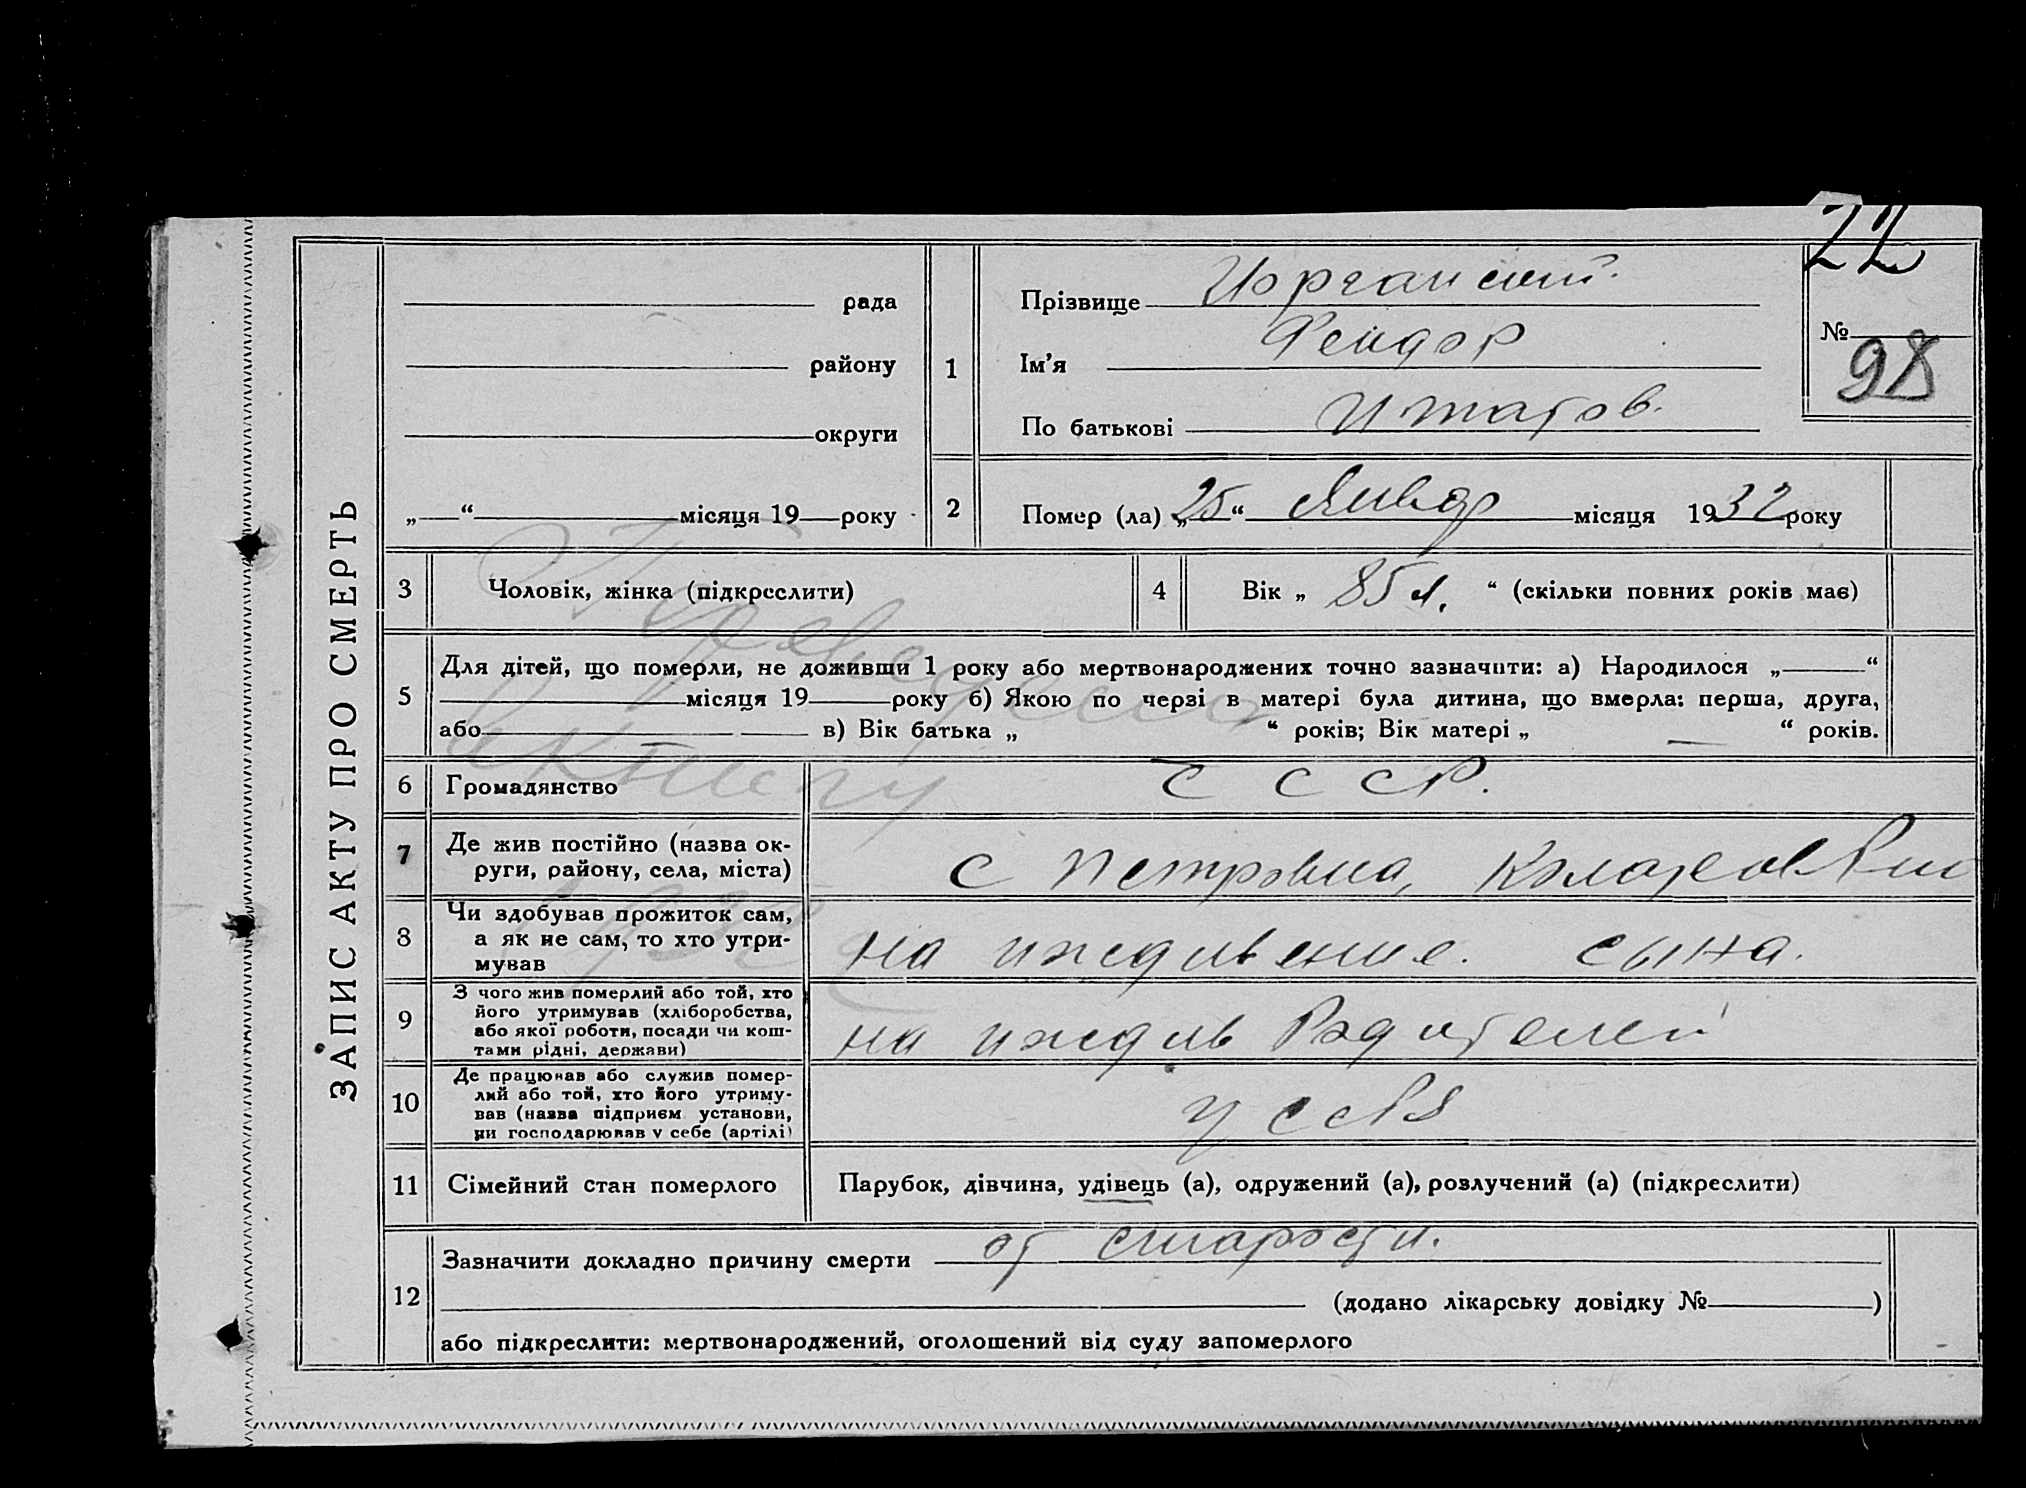 22
ЗАПИС АКТУ ПРО СМЕРТЬ
рада
району
округи
„ “ місяця 19 року
1
Прізвище
Ім’я Фендор
По батькові Игнатов.
№ 98
2
Помер (ла) „25“ Январ місяця 1932 року
3
Чоловік, жінка (підкреслити)
4
Вік „ 85 л. “ (скільки повних років має)
5
Для дітей, що померли, не доживши 1 року або мертвонароджених точно зазначити: а) Народилося „ “
місяця 19 року б) Якою по черзі в матері була дитина, що вмерла: перша, друга,
або в) Вік батька „ “ років; Вік матері „ “ років.
6
Громадянство
С С С Р.
7
Де жив постійно (назва ок-
руги, району, села, міста)
с Петровка,
8
Чи здобував прожиток сам,
а як не сам, то хто утри-
мував
на иждивение. сына.
9
З чого жив померлий або той, хто
його утримував (хліборобства,
або якої роботи, посади чи кош-
тами рідні, держави)
на иждив Родителей
10
Де працював або служив помер-
лий або той, хто його утриму-
вав (назва підприєм установи,
чи господарював у себе (артілі)
у себя
11
Сімейний стан померлого
Парубок, дівчина, удівець (а), одружений (а), розлучений (а) (підкреслити)
12
Зазначити докладно причину смерти от старости.
(додано лікарську довідку № )
або підкреслити: мертвонароджений, оголошений від суду запомерлого